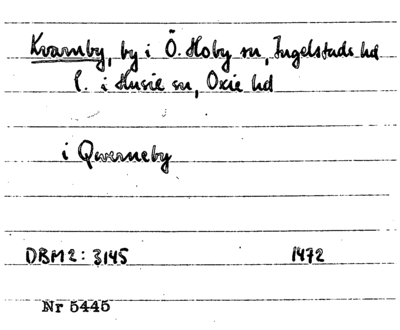 Kvarnby, by i Ö. Hoby sn, Ingelstads hd
l. i Husie sn, Oxie hd
i Qwerneby
DBM2: 3145 1472
Nr 5445